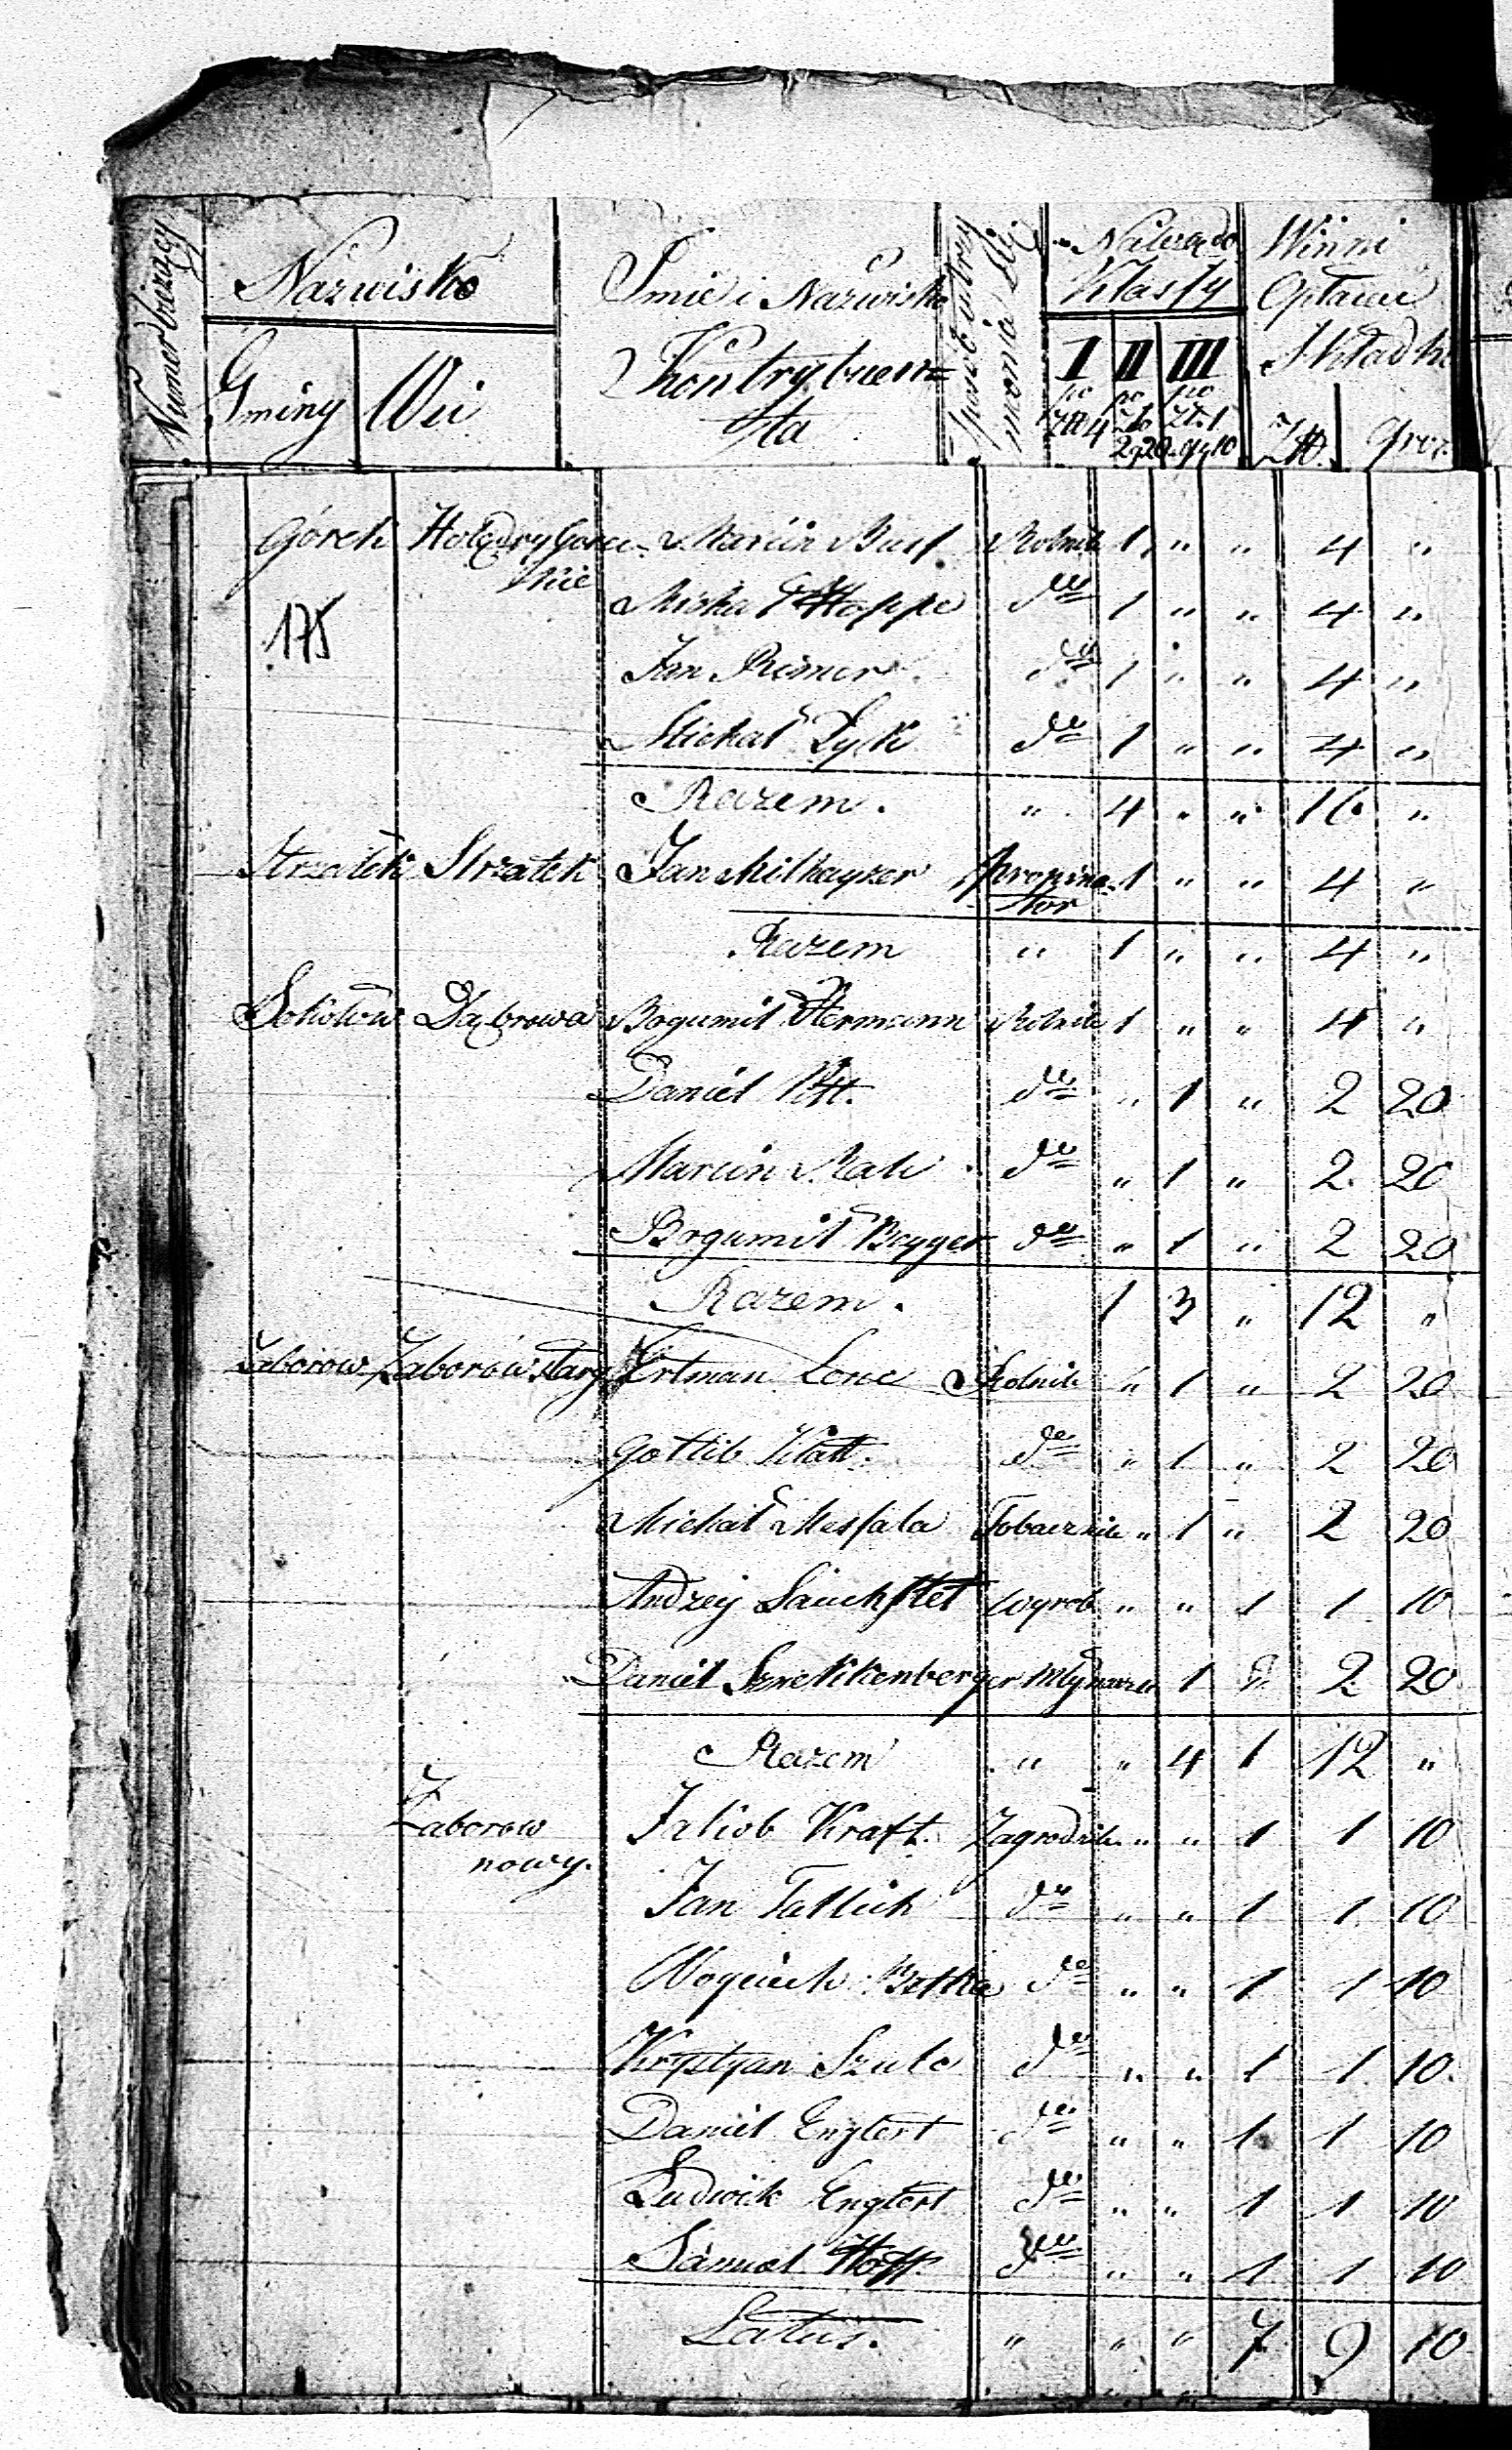 Numer bieżący
Nazwisko
Gminy Wsi
Imie i Nazwisko
Kontrybuen=
ta
Należą do
Klassy
I II III
po po po
Zł 4 Zło 2 g 20 Zł. 1 gr 10
Winni
Opłacić
Składki
Złł. groz.
Górek Holędry Górec-
kie
Marcin Bus Rolnik 1 " " 4 "
175
Michał Hoppe dto 1 " " 4 "
Jan Rimer dto 1 " " 4 "
Michał Lyck dto 1 " " 4 "
Razem. " 4 " " 16 "
Strzałek Strzałek Jan Milhayzer Propina-
tor 1 " " 4 "
Razem " 1 " " 4 "
Sokołów Dąbrowa Bogumił Hermann Rolnik 1 " " 4 "
Daniel Pitt. dto " 1 " 2 20
Marcin Rati dto " 1 " 2 20
Bogumił Beyger dto " 1 " 2 20
Razem. 1 3 " 12 "
Zaborow Zaborów Stary Ertman Lenc Rolnik " 1 " 2 20
Gottlib Klatt. dto " 1 " 2 20
Michał Messala Tobacznik " 1 " 2 20
Andrzey Sauchstet wyrob " " 1 1 10
Daniel Szrekkenberger Młynarz 1 2 20
Razem " " 4 1 12 "
Zaborow
nowy.
Jakob Kraft. Zagrodnik " " 1 1 10
Jan Tatlich dto " " 1 1 10
Woyciech Betke dto " " 1 1 10
Krystyan Szulc dto " " 1 1 10
Daniel Englert dto " " 1 1 10
Ludwik Englert dto " " 1 1 10
Samuel Hoff. dto " " 1 1 10
Latus. " " " 7 9 10